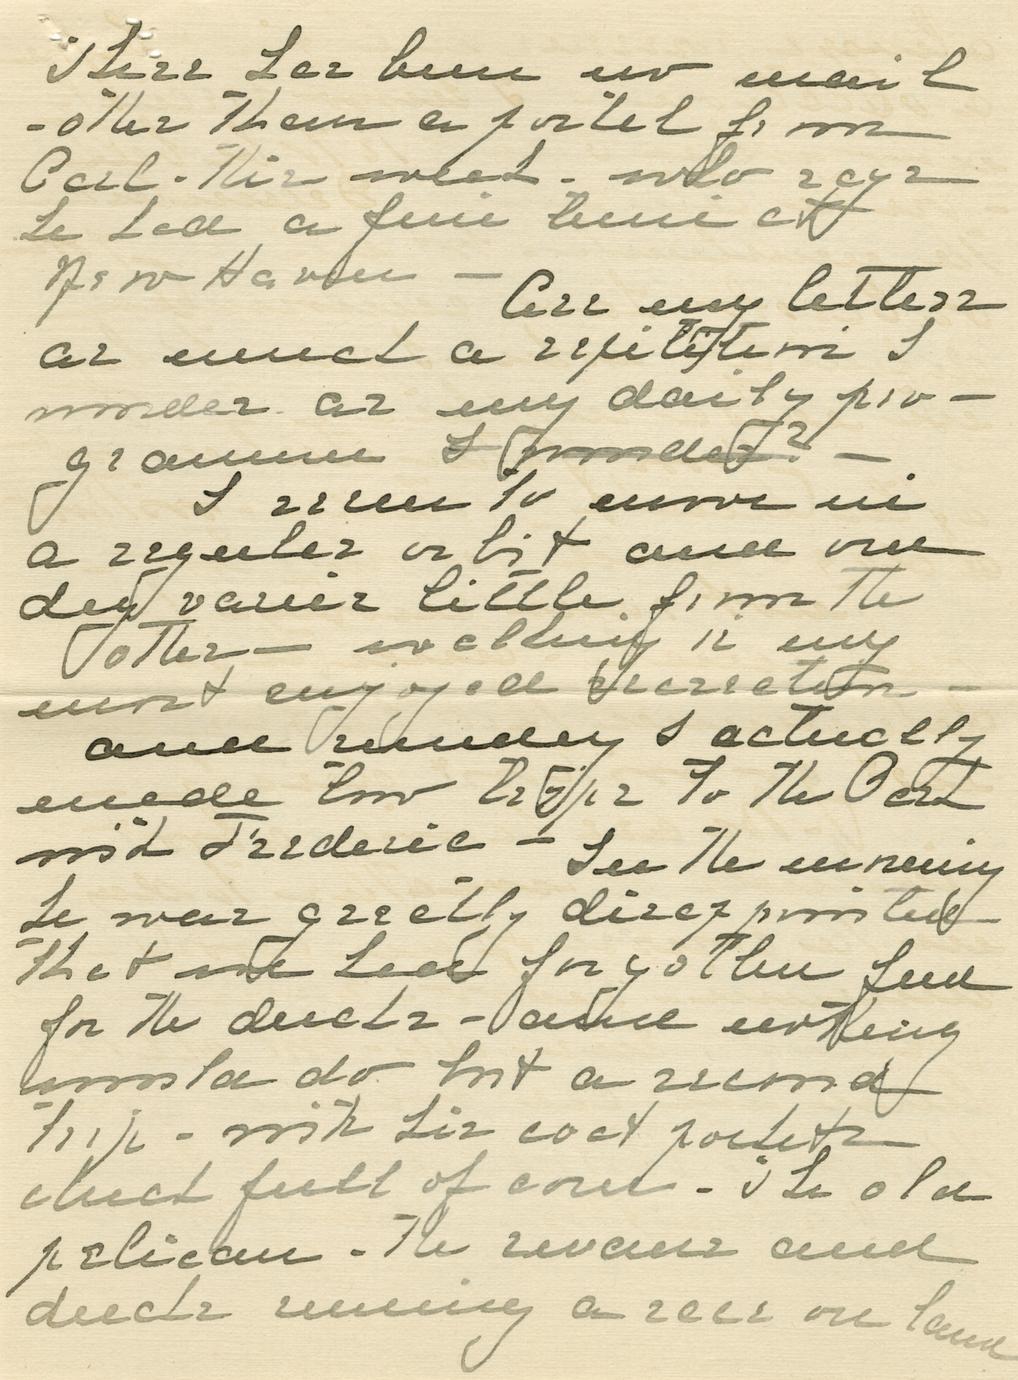 There has been no mail
- other than a postal from
Carl - this week - who says
he had a fine time at
New Haven -
Are my letters
as much a repitition I
wonder as my daily pro -
gramme I wonder? -
I seem to move in
a regular orbit and one
day varies little from the
other - walking is my
most enjoyed recreation -
and sunday I actually
made two trips to the Park
with Frederic - In the morning
he was greatly disappointed
that we had forgotten food
for the ducks - and nothing
would do but a second
trip - with his coat pockets
chuck full of corn - The old
pelican - The swans and
ducks running a race on land